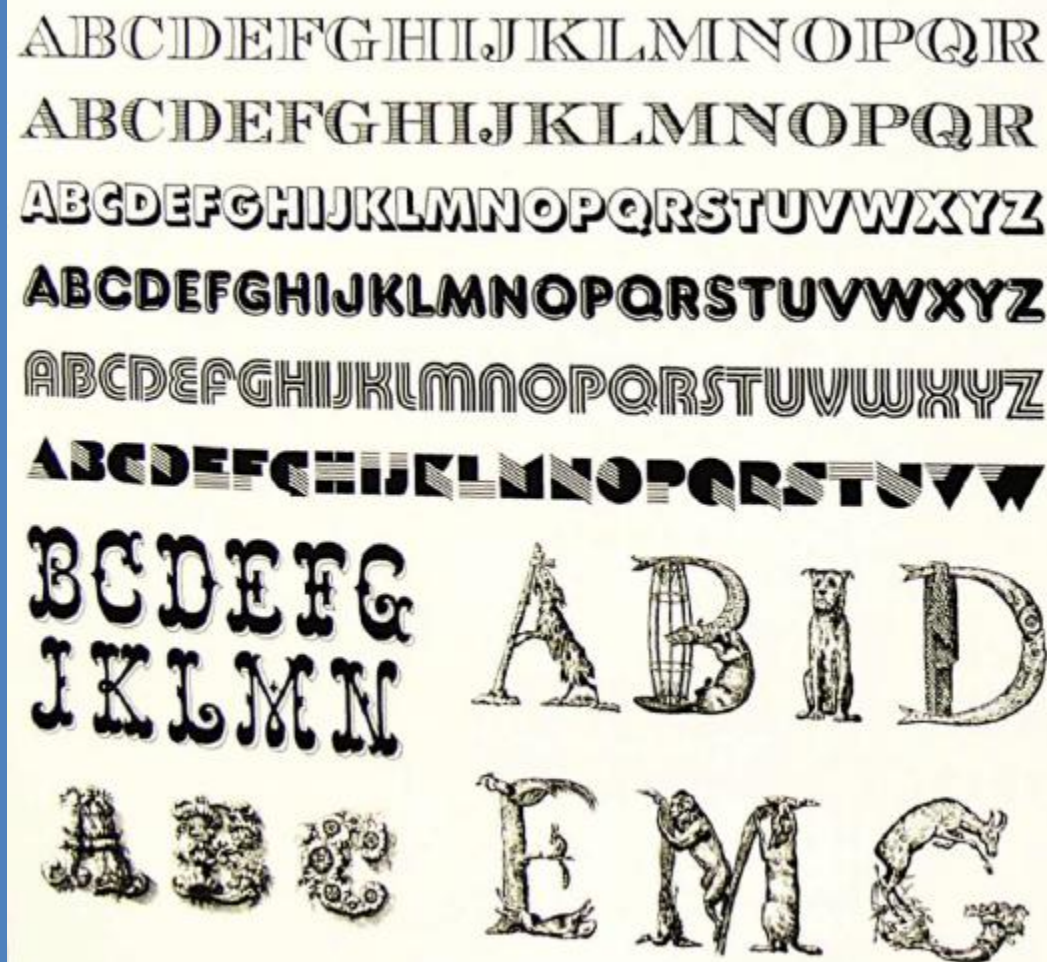 ABCDEFGHIJKLMNOPQR
ABCDEFGHIJKLMNOPQR
ABCDEFGHIJKLMNOPQRSTUVWXYZ
ABCDEFGHIJKLMNOPQRSTUVWXYZ
ABCDEFGHIJKLMNOPQRSTUVWXYZ
ABCDEFGHIJKLMNOPQRSTUVW
BCDEFG
JKLMN
ABC
ABID
EMG